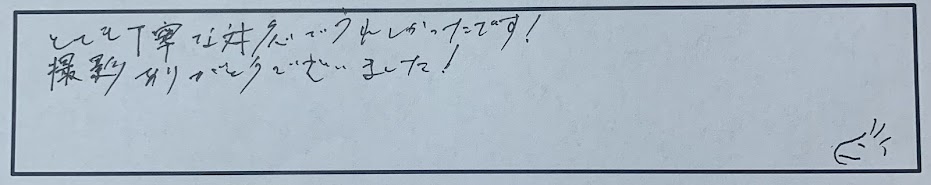 とても丁寧な対応でうれしかったです!
撮影ありがとうございました!